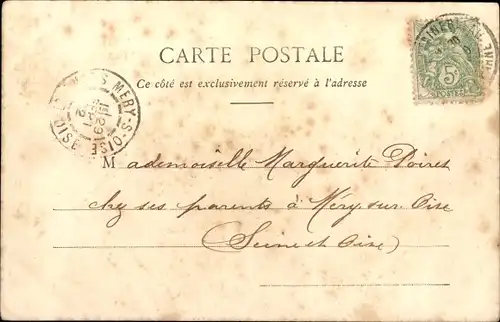 CARTE POSTALE
Ce côté est exclusivement réservé à l'adresse
MERY-S-OISE
5c
Mademoiselle Marguerite Poiret
chez ses parents à Méry sur Oise
(Seine et Oise)